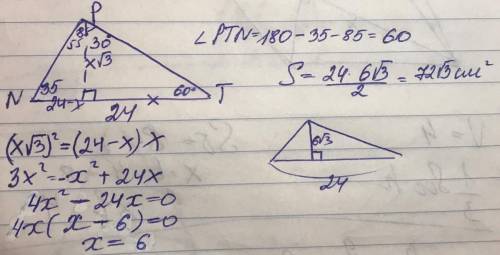 P
85
55 30°
x√3
N 35 60° T
24-x x
24
∠PTN=180-35-85=60
S= 24·6√3/2 = 72√3 см²
(x√3)²=(24-x)x
3x²=-x²+24x
4x²-24x=0
4x(x-6)=0
x=6
6√3
24